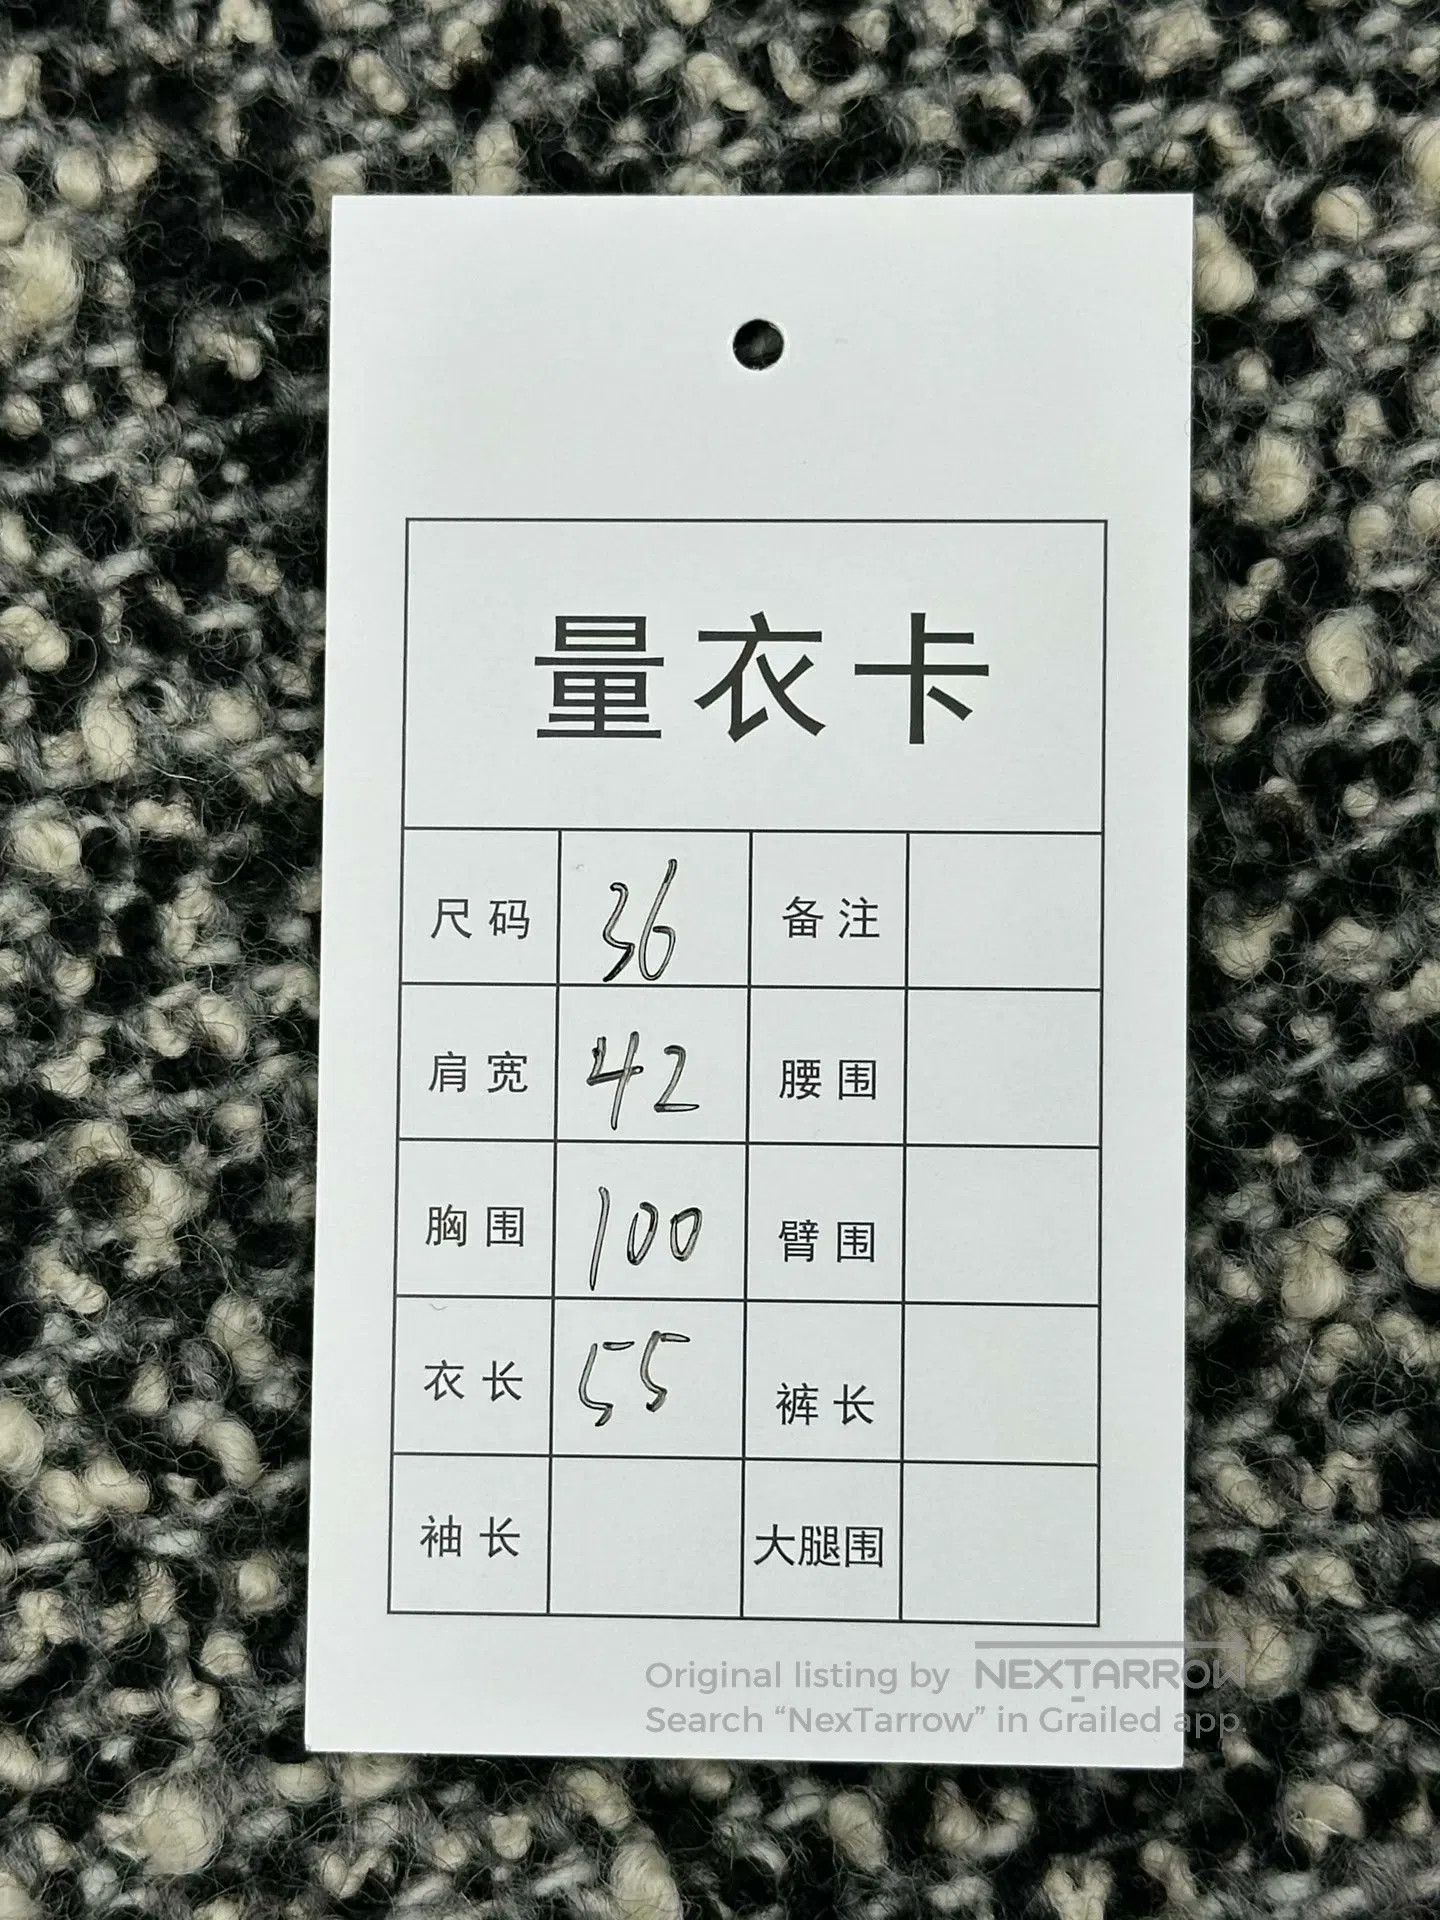 量衣卡
尺码 36 备注
肩宽 42 腰围
胸围 100 臂围
衣长 55 裤长
袖长 大腿围
Original listing by NEXTARROW
Search “NexTarrow” in Grailed app.